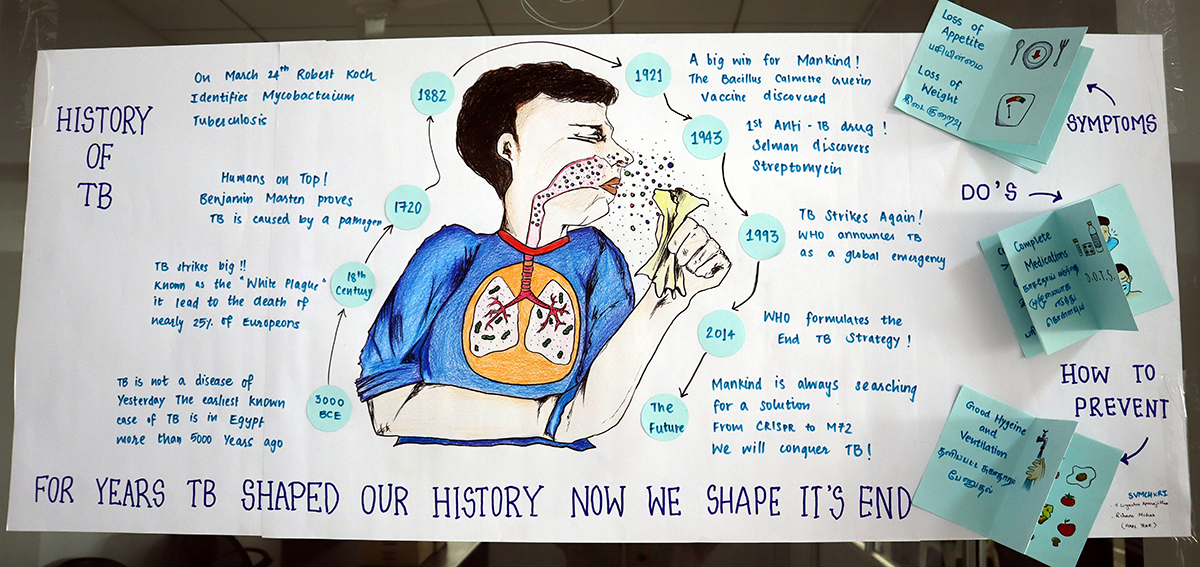 HISTORY
OF
TB
3000
BCE
TB is not a disease of
Yesterday The earliest known
case of TB is in Egypt
more than 5000 Years ago
18th
Century
TB strikes big !!
Known as the "White Plague"
it lead to the death of
nearly 25% of Europeons
1720
Humans on Top!
Benjamin Marten proves
TB is caused by a pamogen
1882
On March 24th Robert Koch
Identifies Mycobacterium
Tuberculosis
1921
A big win for Mankind!
The Bacillus Calmette Guerin
Vaccine discovered
1943
1st Anti-TB drug!
Selman discovers
Streptomycin
1993
TB Strikes Again!
WHO announces TB
as a global emergency
2014
WHO formulates the
End TB Strategy!
The
Future
Mankind is always searching
for a solution
From CRISPR to M72
We will conquer TB!
FOR YEARS TB SHAPED OUR HISTORY NOW WE SHAPE IT'S END
SYMPTOMS
Loss of
Appetite
பசியின்மை
Loss of
Weight
எடை குறைவு
DO'S
Complete
Medications
D.O.T.S.
HOW TO
PREVENT
Good Hygeine
and
Ventilation
பேணுதல்
SVMCH&RI